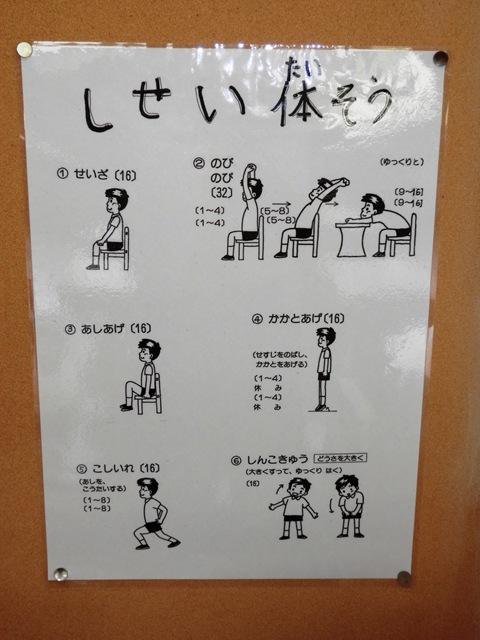 たい
しせい体そう
① せいざ〔16〕
② のび
のび
〔32〕
(ゆっくりと)
〔1～4〕
〔1～4〕
〔5～8〕
〔5～8〕
〔9～16〕
〔9～16〕
③ あしあげ〔16〕
④ かかとあげ〔16〕
(せすじをのばし、
かかとをあげる)
〔1～4〕
休み
〔1～4〕
休み
⑤ こしいれ〔16〕
(あしを、
こうたいする)
〔1～8〕
〔1～8〕
⑥ しんこきゅう どうさを大きく
(大きくすって、ゆっくり はく)
〔16〕